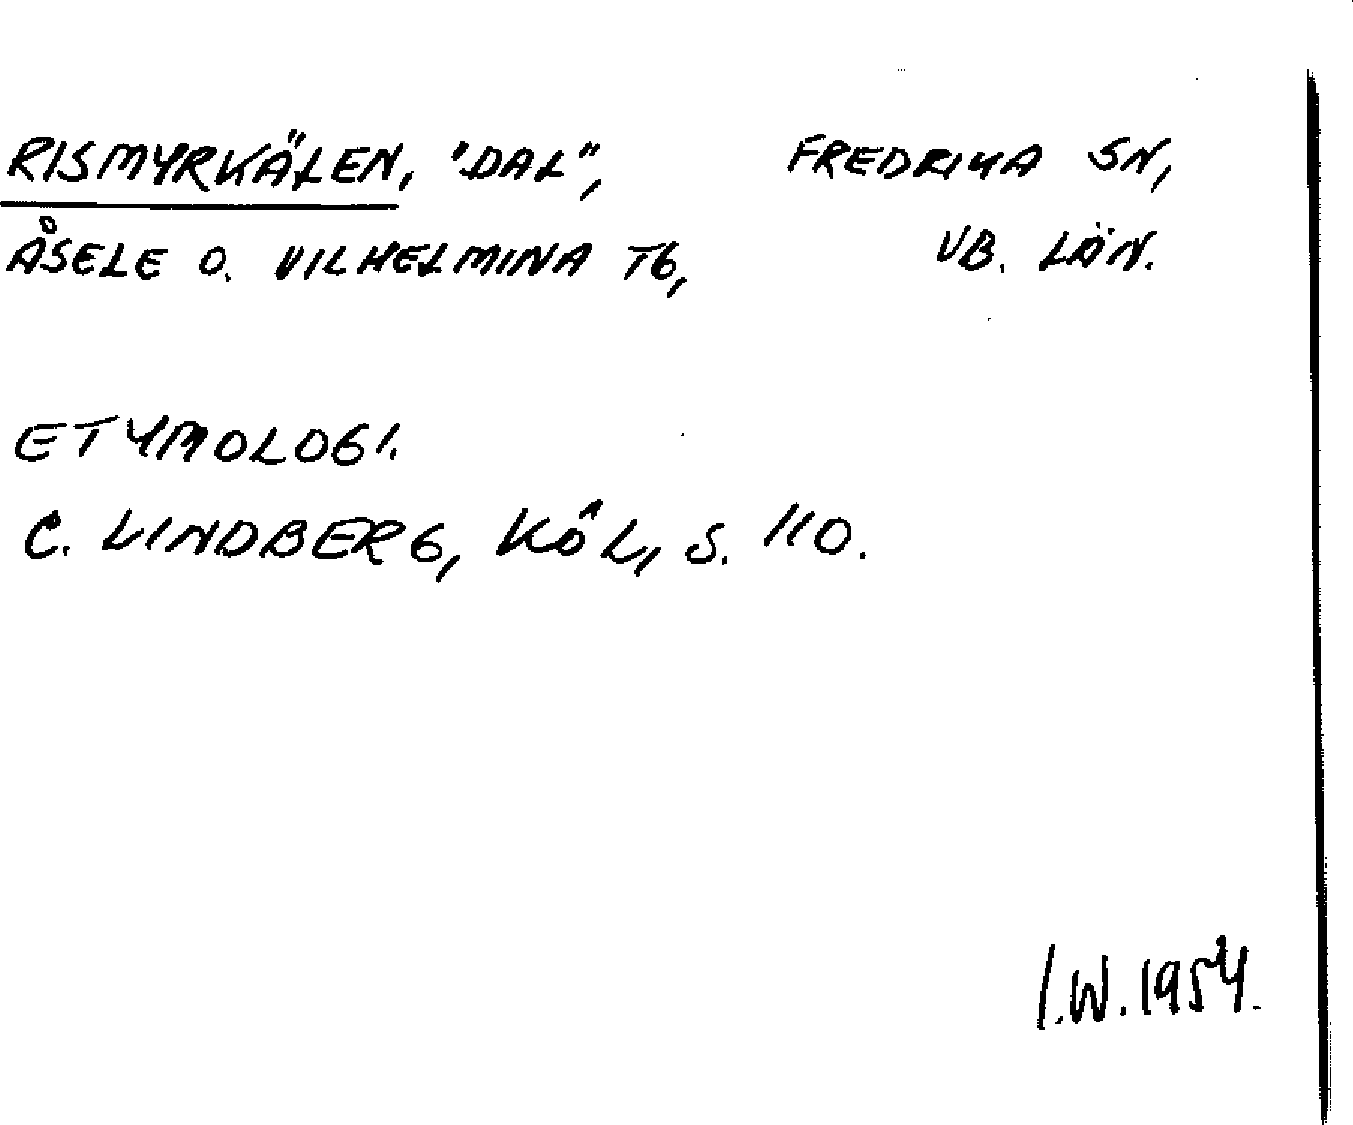 RISMYRKÄLEN, "DAL", FREDRIKA SN,
ÅSELE O. VILHELMINA TG, VB. LÄN.
ETYMOLOGI.
C. LINDBERG, KÖL, S. 110.
I.W. 1954.